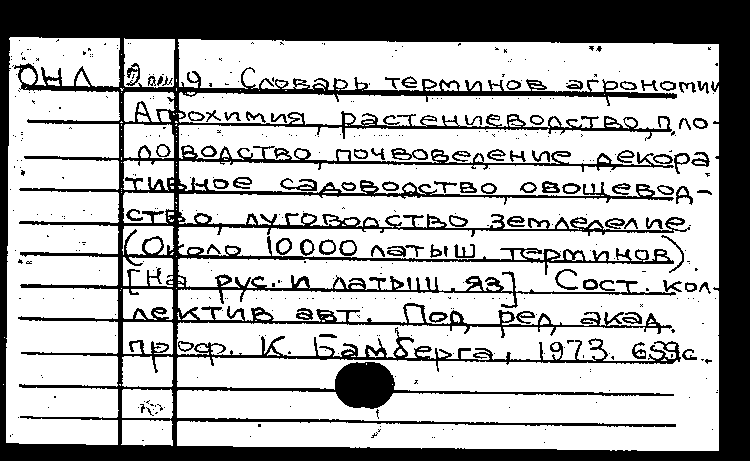 ОНЛ 9. Словарь терминов агрономии
Агрохимия, растениеводство, пло-
доводство, почвоведение, декора-
тивное садоводство, овощевод-
ство, луговодство, земледелие
(Около 10000 латыш. терминов)
[На рус. и латыш. яз]. Сост. кол-
лектив авт. Под ред. акад.
проф. К. Бамберга, 1973. 659с.